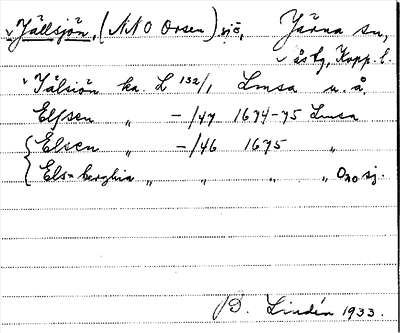 v Jällsjön, (NNO Orsen) sjö, Järna sn,
v Äsbg, Kopp. l.
v Jälsiön ka. L 132/1 Lmsa u. å.
Elfsen " -/47 1674-75 Lmsa
{ Elsen " -/46 1675 "
{ Els-berghia " " " " Ono sj.
D. Lindén 1933.